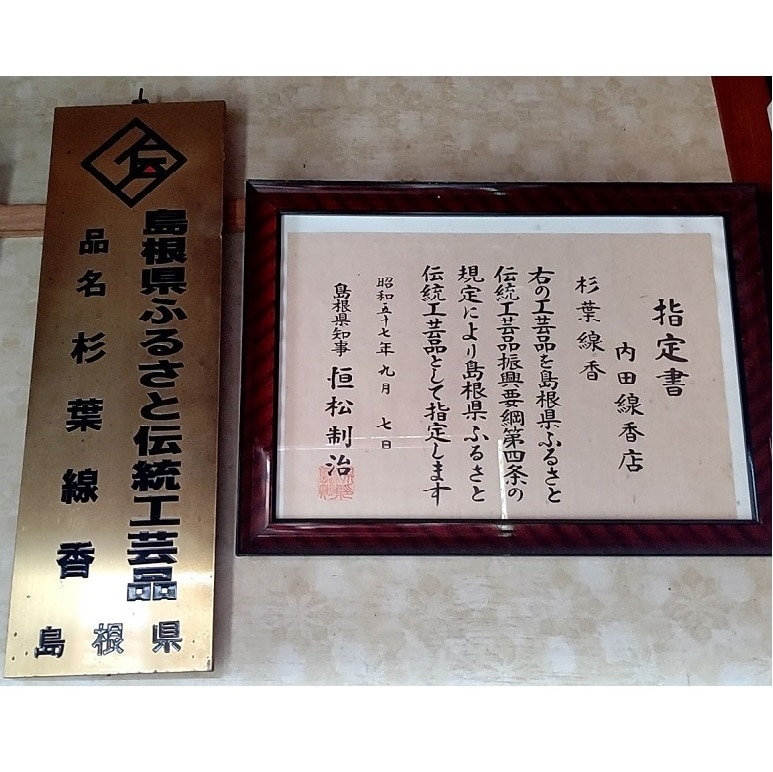 伝
島根県ふるさと伝統工芸品
品名 杉葉線香
島根県
指定書
内田線香店
杉葉線香
右の工芸品を島根県ふるさと
伝統工芸品振興要綱第四条の
規定により島根県ふるさと
伝統工芸品として指定します
昭和五十七年九月 七日
島根県知事 恒松制治